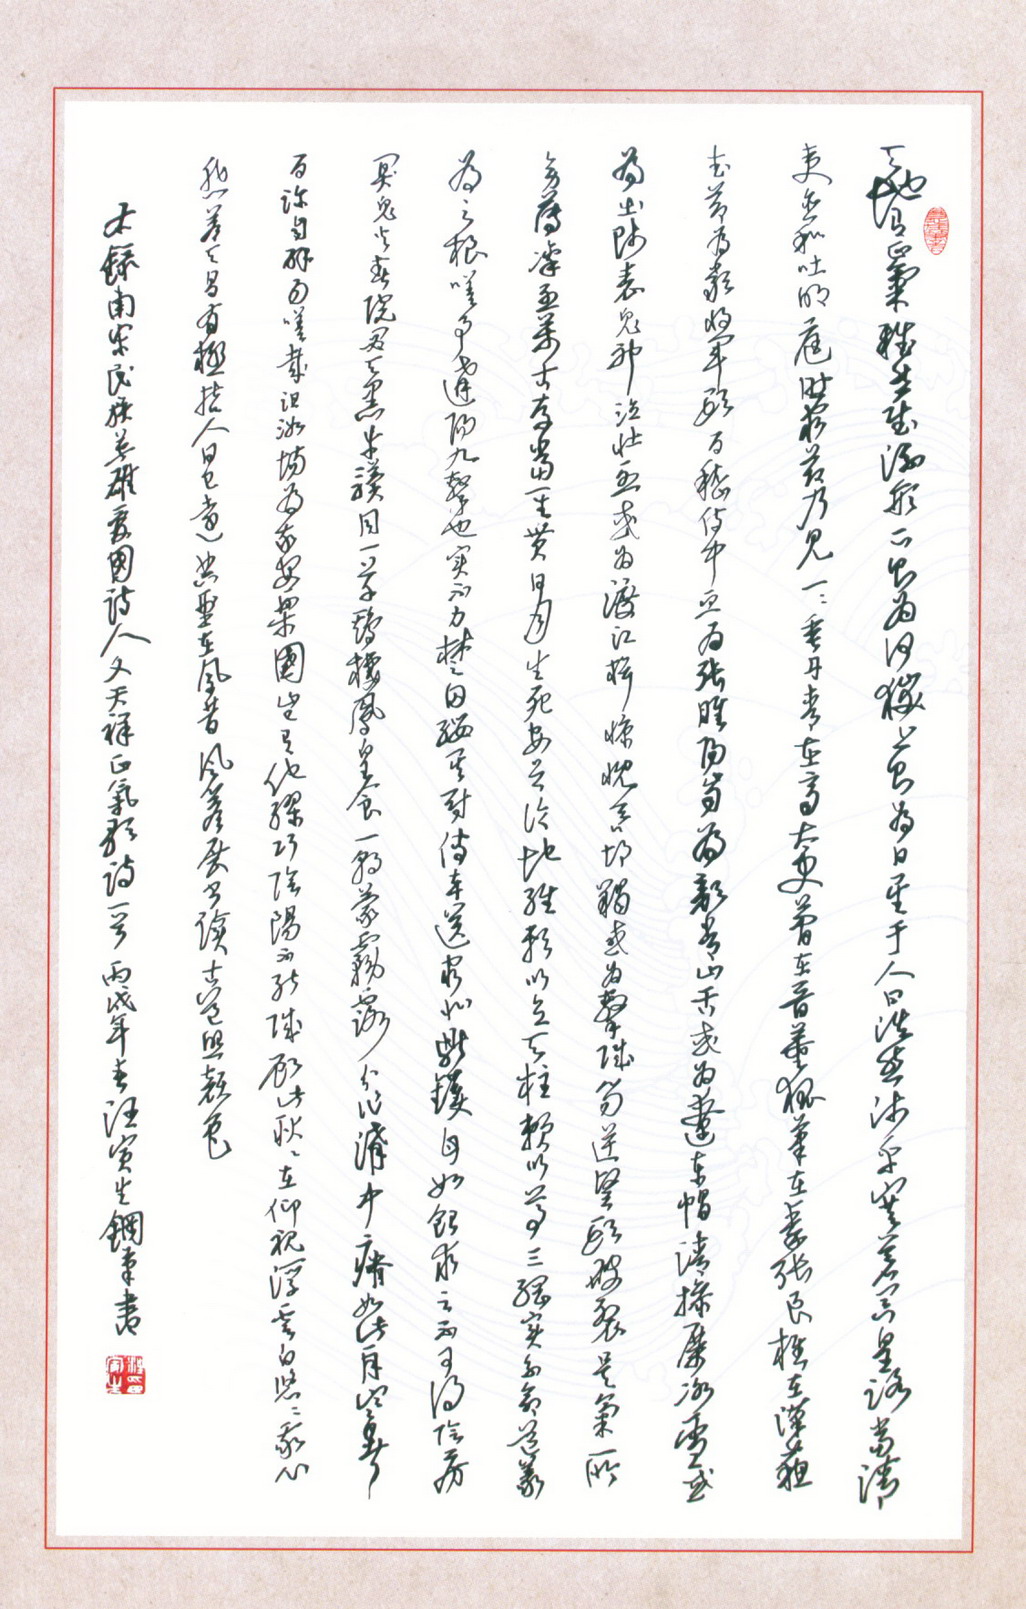 天地有正氣雜然賦流形下則為河嶽上則為日星于人曰浩然沛乎塞蒼冥皇路當清
夷含和吐明庭時窮節乃見一一垂丹青在齊太史簡在晉董狐筆在秦張良椎在漢蘇
武節為嚴將軍頭為嵇侍中血為張睢陽齒為顏常山舌或為遼東帽清操厲冰雪或
為出師表鬼神泣壯烈或為渡江楫慷慨吞胡羯或為擊賊笏逆豎頭破裂是氣所
旁薄凜烈萬古存當其貫日月生死安足論地維賴以立天柱賴以尊三綱實系命道義
為之根嗟予遘陽九隸也實不力楚囚纓其冠傳車送窮北鼎鑊甘如飴求之不可得陰房
闃鬼火春院閟天黑牛驥同一皁雞棲鳳皇食一朝蒙霧露分作溝中瘠如此再寒暑
百沴自辟易嗟哉沮洳場為我安樂國豈有他繆巧陰陽不能賊顧此耿耿在仰視浮雲白悠悠我心
悲蒼天曷有極哲人日已遠典型在夙昔風簷展書讀古道照顏色
右錄南宋民族英雄愛國詩人文天祥正氣歌詩一首 丙戌年春汪寅生鋼筆書